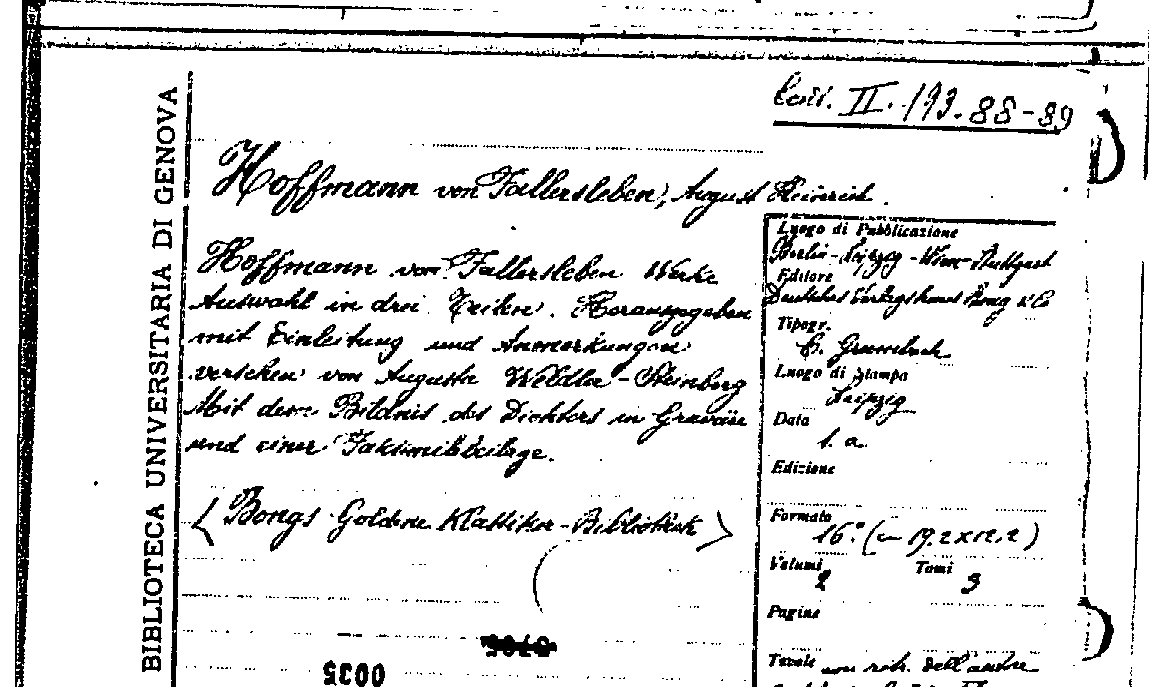 II. 193. 88-89
BIBLIOTECA UNIVERSITARIA DI GENOVA
Hoffmann von Fallersleben, August Heinrich.
Hoffmann von Fallersleben Werke
Auswahl in drei Teilen. Herausgegeben
mit Einleitung und Anmerkungen
versehen von Augusta Weldler-Steinberg
Mit dem Bildnis des Dichters in Gravüre
und einer Faksimilebeilage.
<Bongs Goldene Klassiker-Bibliothek>
Luogo di Pubblicazione
Berlin-Leipzig-Wien-Stuttgart
Editore
Deutsches Verlagshaus Bong & Co
Tipogr.
C. Grumbach
Luogo di Stampa
Leipzig
Data
s. a.
Edizione
Formato
16° (cm 19.2x12.2)
Volumi
2
Tomi
3
Pagine
Tavole con ritr. dell'autore
0035